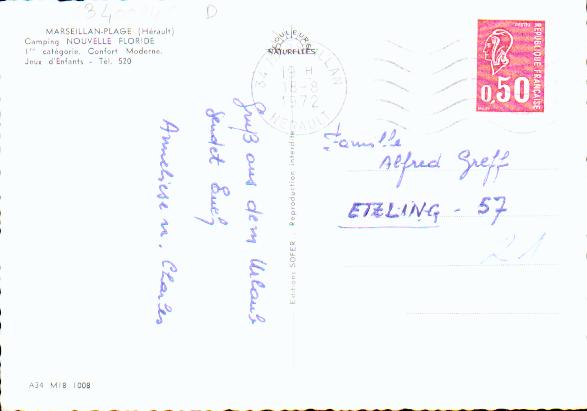 MARSEILLAN-PLAGE (Hérault)
Camping NOUVELLE FLORIDE
1re catégorie. Confort Moderne.
Jeux d'Enfants - Tél. 520
COULEURS
NATURELLES
19 H
16-8
1972
HERAULT
POSTES
REPUBLIQUE FRANÇAISE
0,50
Gruß aus dem Urlaub
sendet Euch
Anneliese u. Charles
Editions SOFER - Reproduction interdite
Famille
Alfred Greff
ETZLING - 57
21
A34 MIB 1008